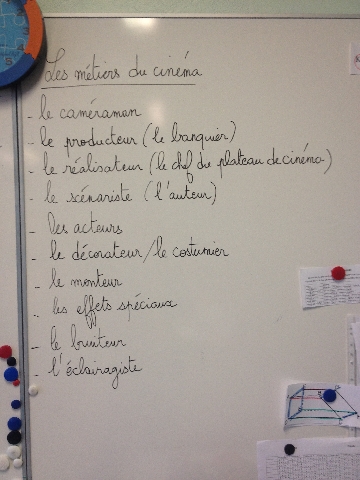 Les métiers du cinéma
- le caméraman
- le producteur (le banquier)
- le réalisateur (le chef du plateau de cinéma)
- le scénariste (l'auteur)
- Des acteurs
- le décorateur/le costumier
- le monteur
- les effets spéciaux
- le bruiteur
- l'éclairagiste